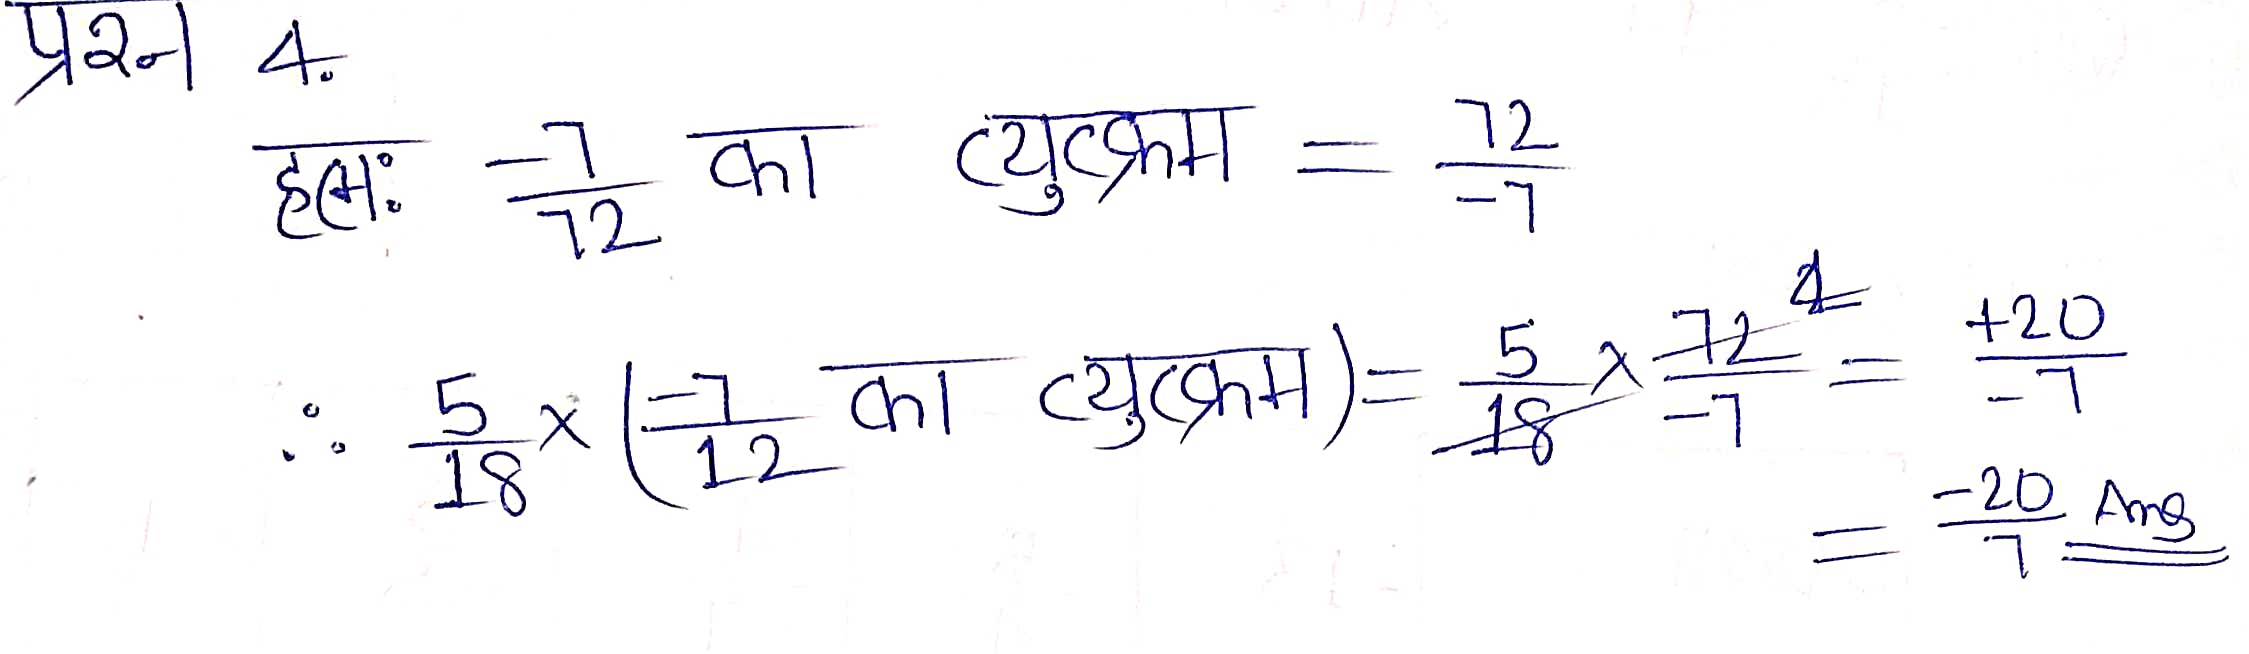 प्रश्न 4.
हलः -7/72 का व्युत्क्रम = 72/-7
∴ 5/18 × (-7/12 का व्युत्क्रम) = 5/18 × 72/-7 4 = +20/-7
= -20/7 Ans